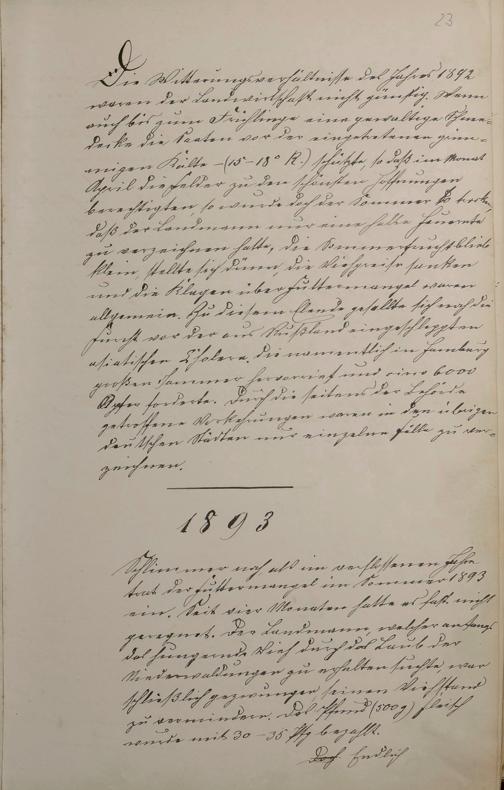 23
Die Witterungsverhältnisse des Jahres 1892
waren der Landwirtschaft nicht günstig. Wenn
auch bis zum Frühlinge eine gewaltige Schnee-
decke die Saaten vor der eingetretenen grim-
migen Kälte - (15-18° R.) schützte, so daß im Monat
April die Felder zu den schönsten Hoffnungen
berechtigten, so wurde doch der Sommer so trocken,
daß der Landmann nur eine halbe Heuernte
zu verzeichnen hatte, die Sommerfrucht blieb
klein, stellte sich dünn, die Viehpreise sanken
und die Klagen über Futtermangel waren
allgemein. Zu diesem Elende gesellte sich noch die
Furcht vor der aus Rußland eingeschleppten
asiatischen Cholera, die namentlich in Hamburg
großen Jammer hervorrief und circa 6000
Opfer forderte. Durch die seitens der Behörde
getroffene Vorkehrungen waren in den übrigen
deutschen Städten nur einzelne Fälle zu ver-
zeichnen.
1893
Schlimmer noch als im verflossenen Jahre
trat der Futtermangel im Sommer 1893
ein. Seit vier Monaten hatte es fast nicht
geregnet. Der Landmann, welcher anfangs
das hungernde Vieh durch das Laub der
Niederwaldungen zu erhalten suchte, war
schließlich gezwungen, seinen Viehstand
zu vermindern. Das Pfund (500g) Fleisch
wurde mit 30-35 Pfg bezahlt.
Doch Endlich